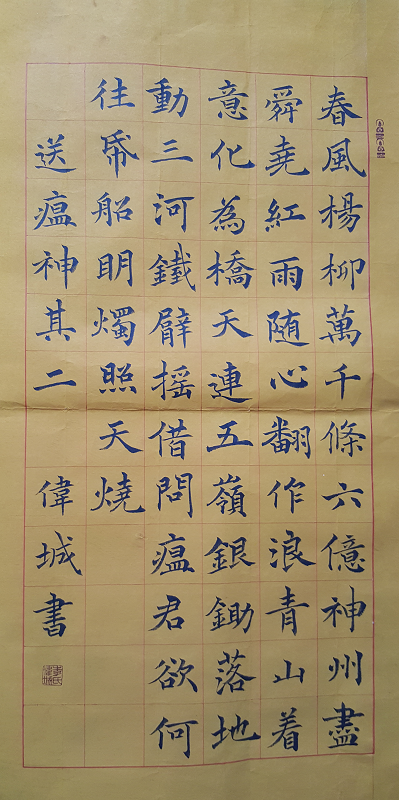 春風楊柳萬千條六億神州盡
舜堯紅雨随心翻作浪青山着
意化為橋天連五嶺銀鋤落地
動三河鐵臂摇借問瘟君欲何
往帋船明燭照天燒
送瘟神其二 偉城書